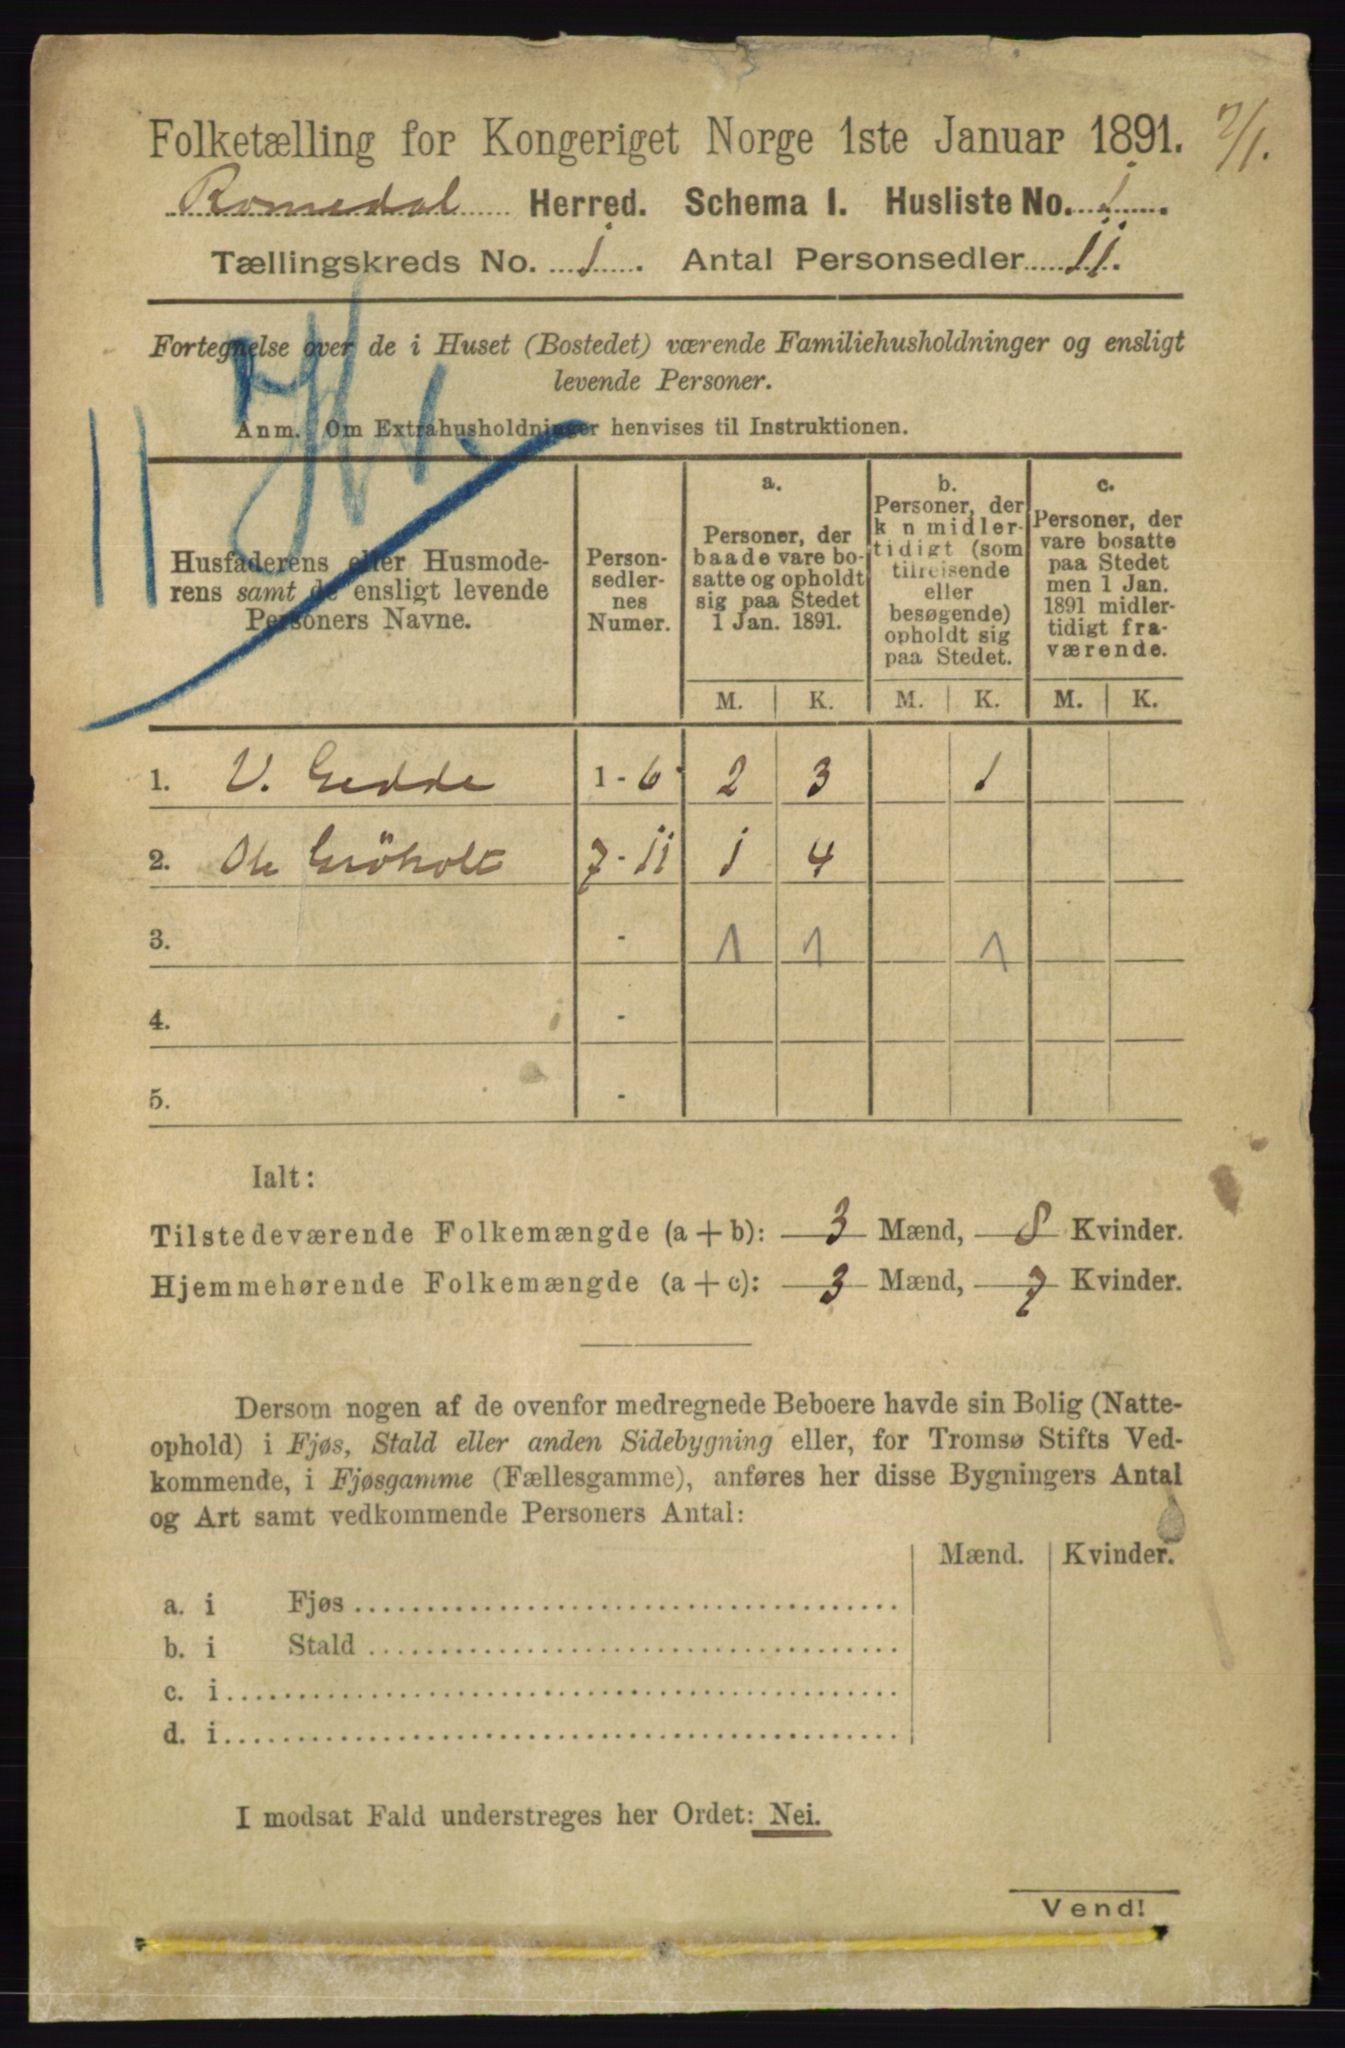 Folketælling for Kongeriget Norge 1ste Januar 1891. 2/1.
Romedal Herred. Schema 1. Husliste No. 1.
Tællingskreds No. 1. Antal Personsedler 11.
Fortegnelse over de i Huset (Bostedet) værende Familiehusholdninger og ensligt
levende Personer.
Anm. Om Extrahusholdninger henvises til Instruktionen.
11
Husfaderens eller Husmode-
rens samt de ensligt levende
Personers Navne.
Person-
sedler-
nes
Numer.
a.
Personer, der
baade vare bo-
satte og opholdt
sig paa Stedet
1 Jan. 1891.
b.
Personer, der
k n midler-
tidigt (som
tilreisende
eller
besøgende)
opholdt sig
paa Stedet.
c.
Personer, der
vare bosatte
paa Stedet
men 1 Jan.
1891 midler-
tidigt fra-
værende.
M. K. M. K. M. K.
1. V. Gedde 1 - 6 2 3 1
2. Ole Gröholt 7 - 11 1 4
3. - 1 1 1
4. -
5. -
Ialt:
Tilstedeværende Folkemængde (a + b): 3 Mænd, 8 Kvinder.
Hjemmehørende Folkemængde (a + c): 3 Mænd, 7 Kvinder.
Dersom nogen af de ovenfor medregnede Beboere havde sin Bolig (Natte-
ophold) i Fjøs, Stald eller anden Sidebygning eller, for Tromsø Stifts Ved-
kommende, i Fjøsgamme (Fællesgamme), anføres her disse Bygningers Antal
og Art samt vedkommende Personers Antal:
Mænd. Kvinder.
a. i Fjøs
b. i Stald
c. i
d. i
I modsat Fald understreges her Ordet: Nei.
Vend!